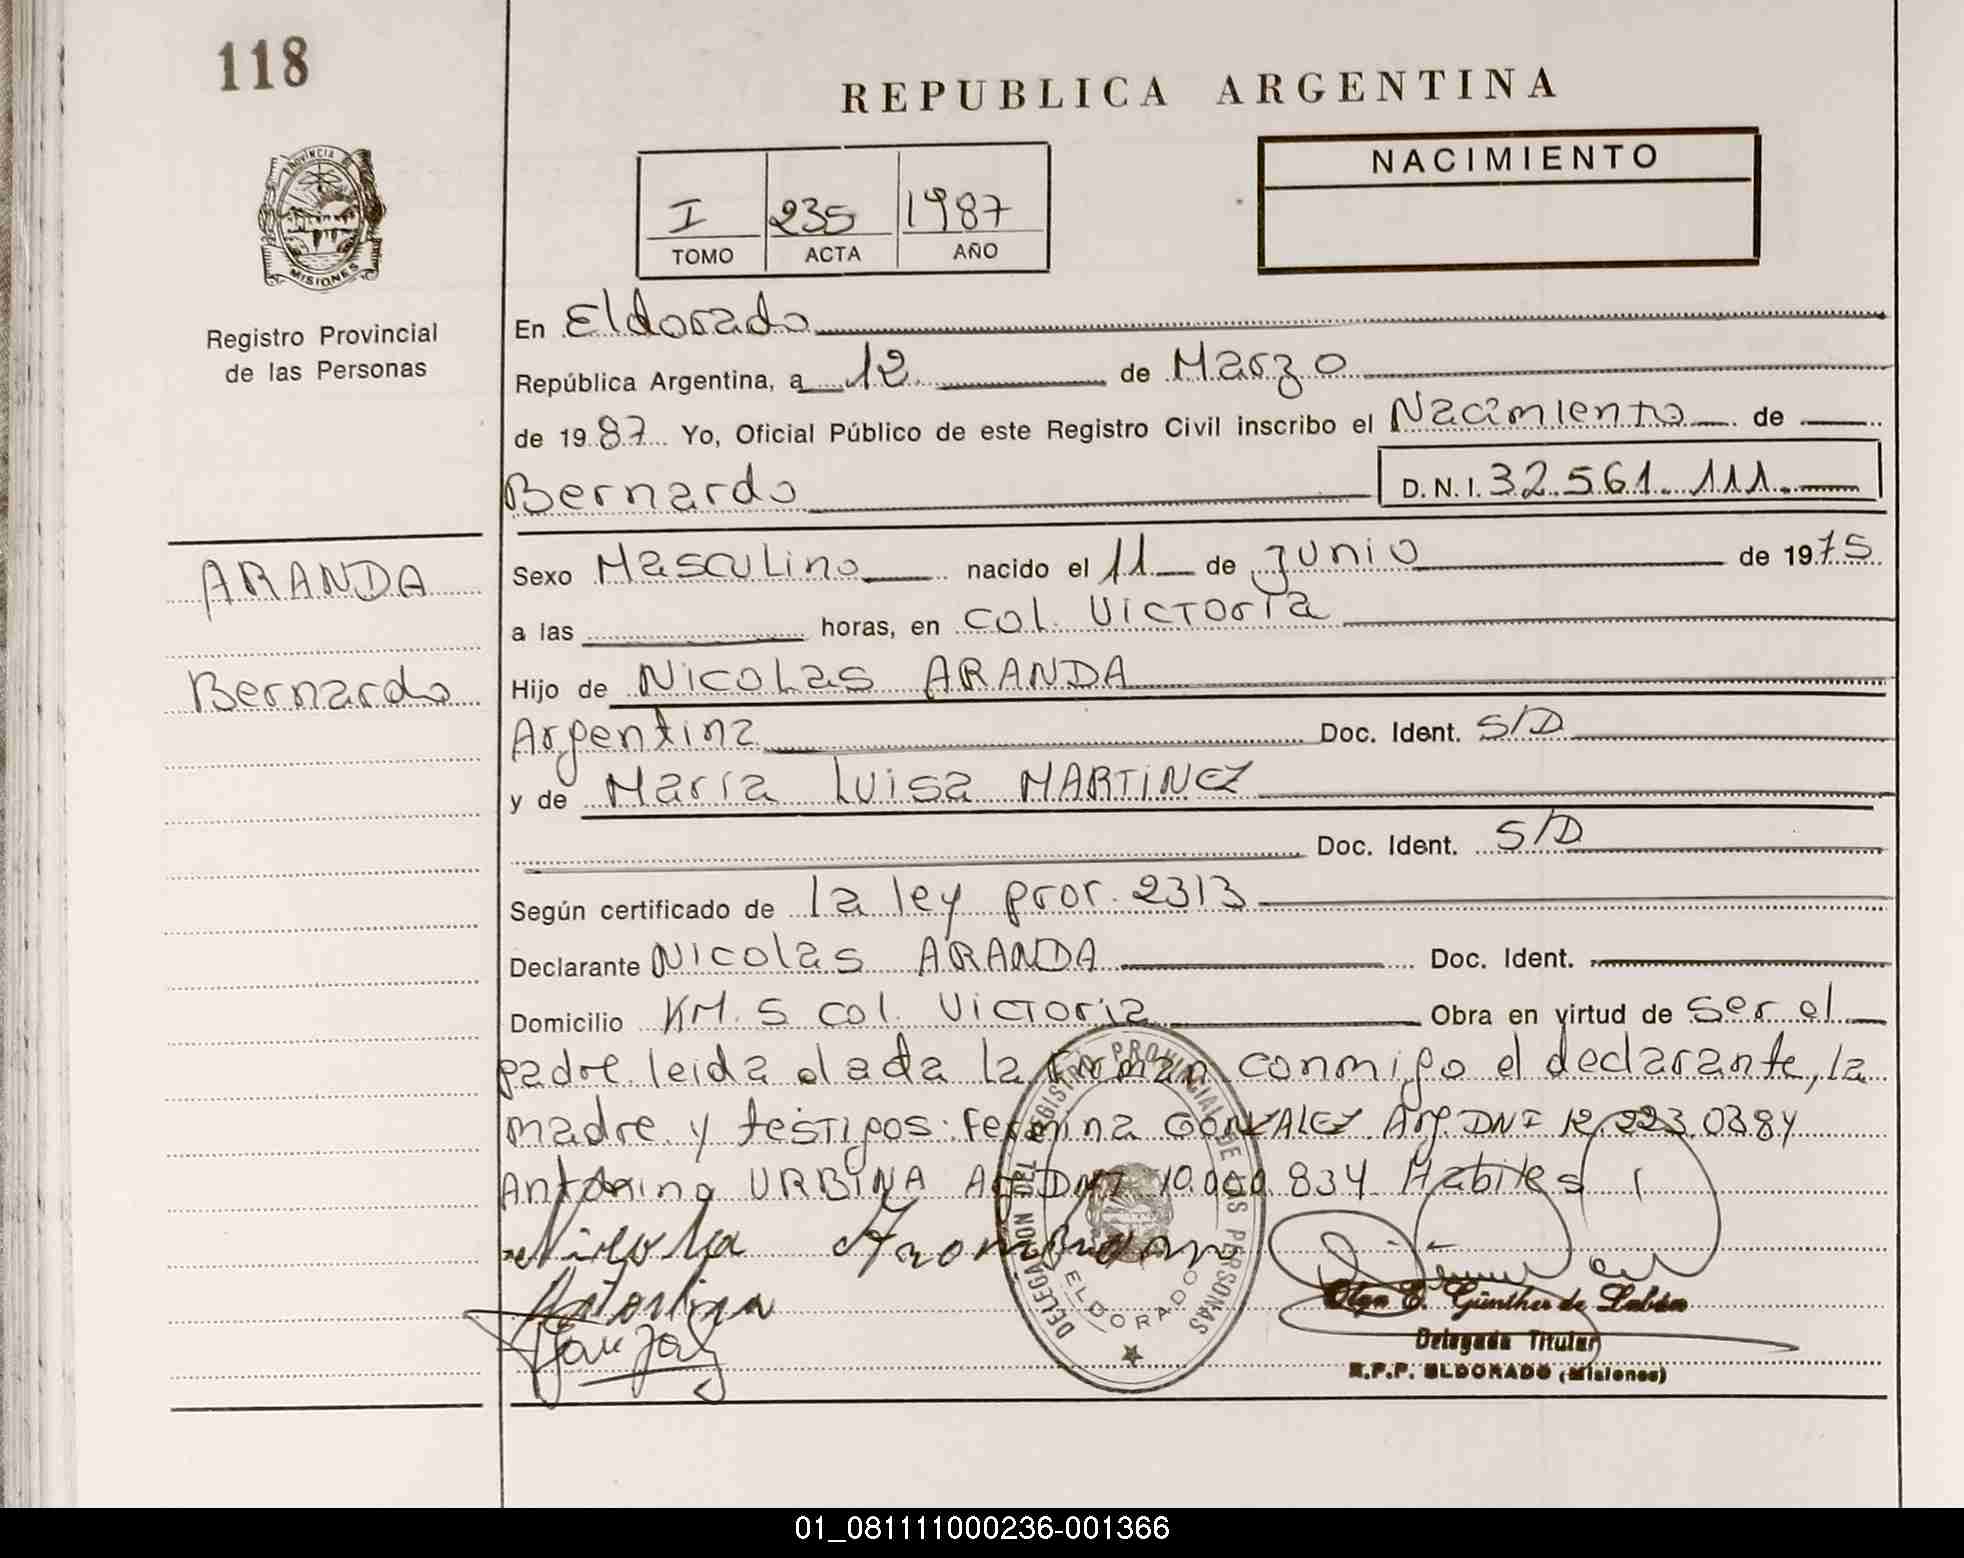 118
REPUBLICA ARGENTINA
NACIMIENTO
I 235 1987
TOMO ACTA AÑO
PROVINCIA DE
MISIONES
Registro Provincial
de las Personas
En Eldorado
República Argentina, a 12 de Marzo
de 1987 Yo, Oficial Público de este Registro Civil inscribo el Nacimiento de
Bernardo D.N.I. 32.561.111.
ARANDA
Bernardo
Sexo Masculino nacido el 11 de Junio de 1975
a las horas, en Col. Victoria
Hijo de Nicolas ARANDA
Argentina Doc. Ident. S/D
y de María Luisa MARTINEZ
Doc. Ident. S/D
Según certificado de la ley pror. 2313
Declarante Nicolas ARANDA Doc. Ident.
Domicilio KM. 5 Col. Victoria Obra en virtud de ser el
padre leida dada la firman conmigo el declarante, la
madre y testigos: Fermina GONZALEZ Arg. DNI 12.223.038 y
Antonina URBINA Arg DNI 10.000.834 Habiles
REGISTRO PROVINCIAL DE LAS PERSONAS
ELDORADO
Olga E. Günther de Labán
Delegada Titular
R.P.P. ELDORADO (Misiones)
01_081111000236-001366